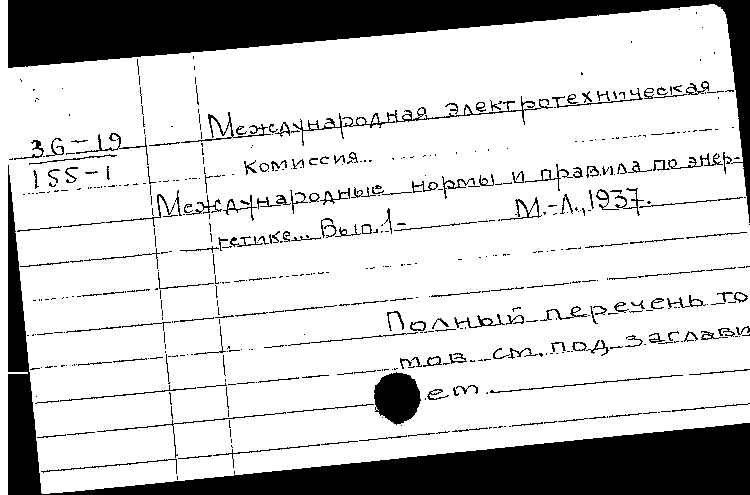 36-19
155-1
Международная электротехническая
комиссия...
Международные нормы и правила по энер-
гетике... Вып. 1- М.-Л., 1937.
Полный перечень то
мов см. под заглави
ем.